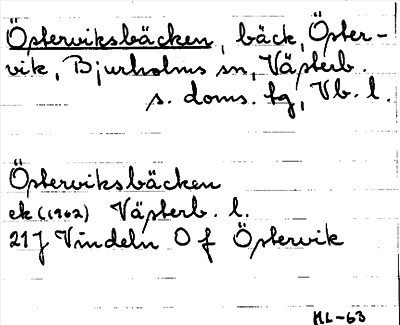 Österviksbäcken, bäck, Öster-
vik, Bjurholms sn, Västerb.
s. doms. tg, Vb. l.
Österviksbäcken
ek (1962) Västerb. l.
21J Vindeln O f Östervik
HL-63